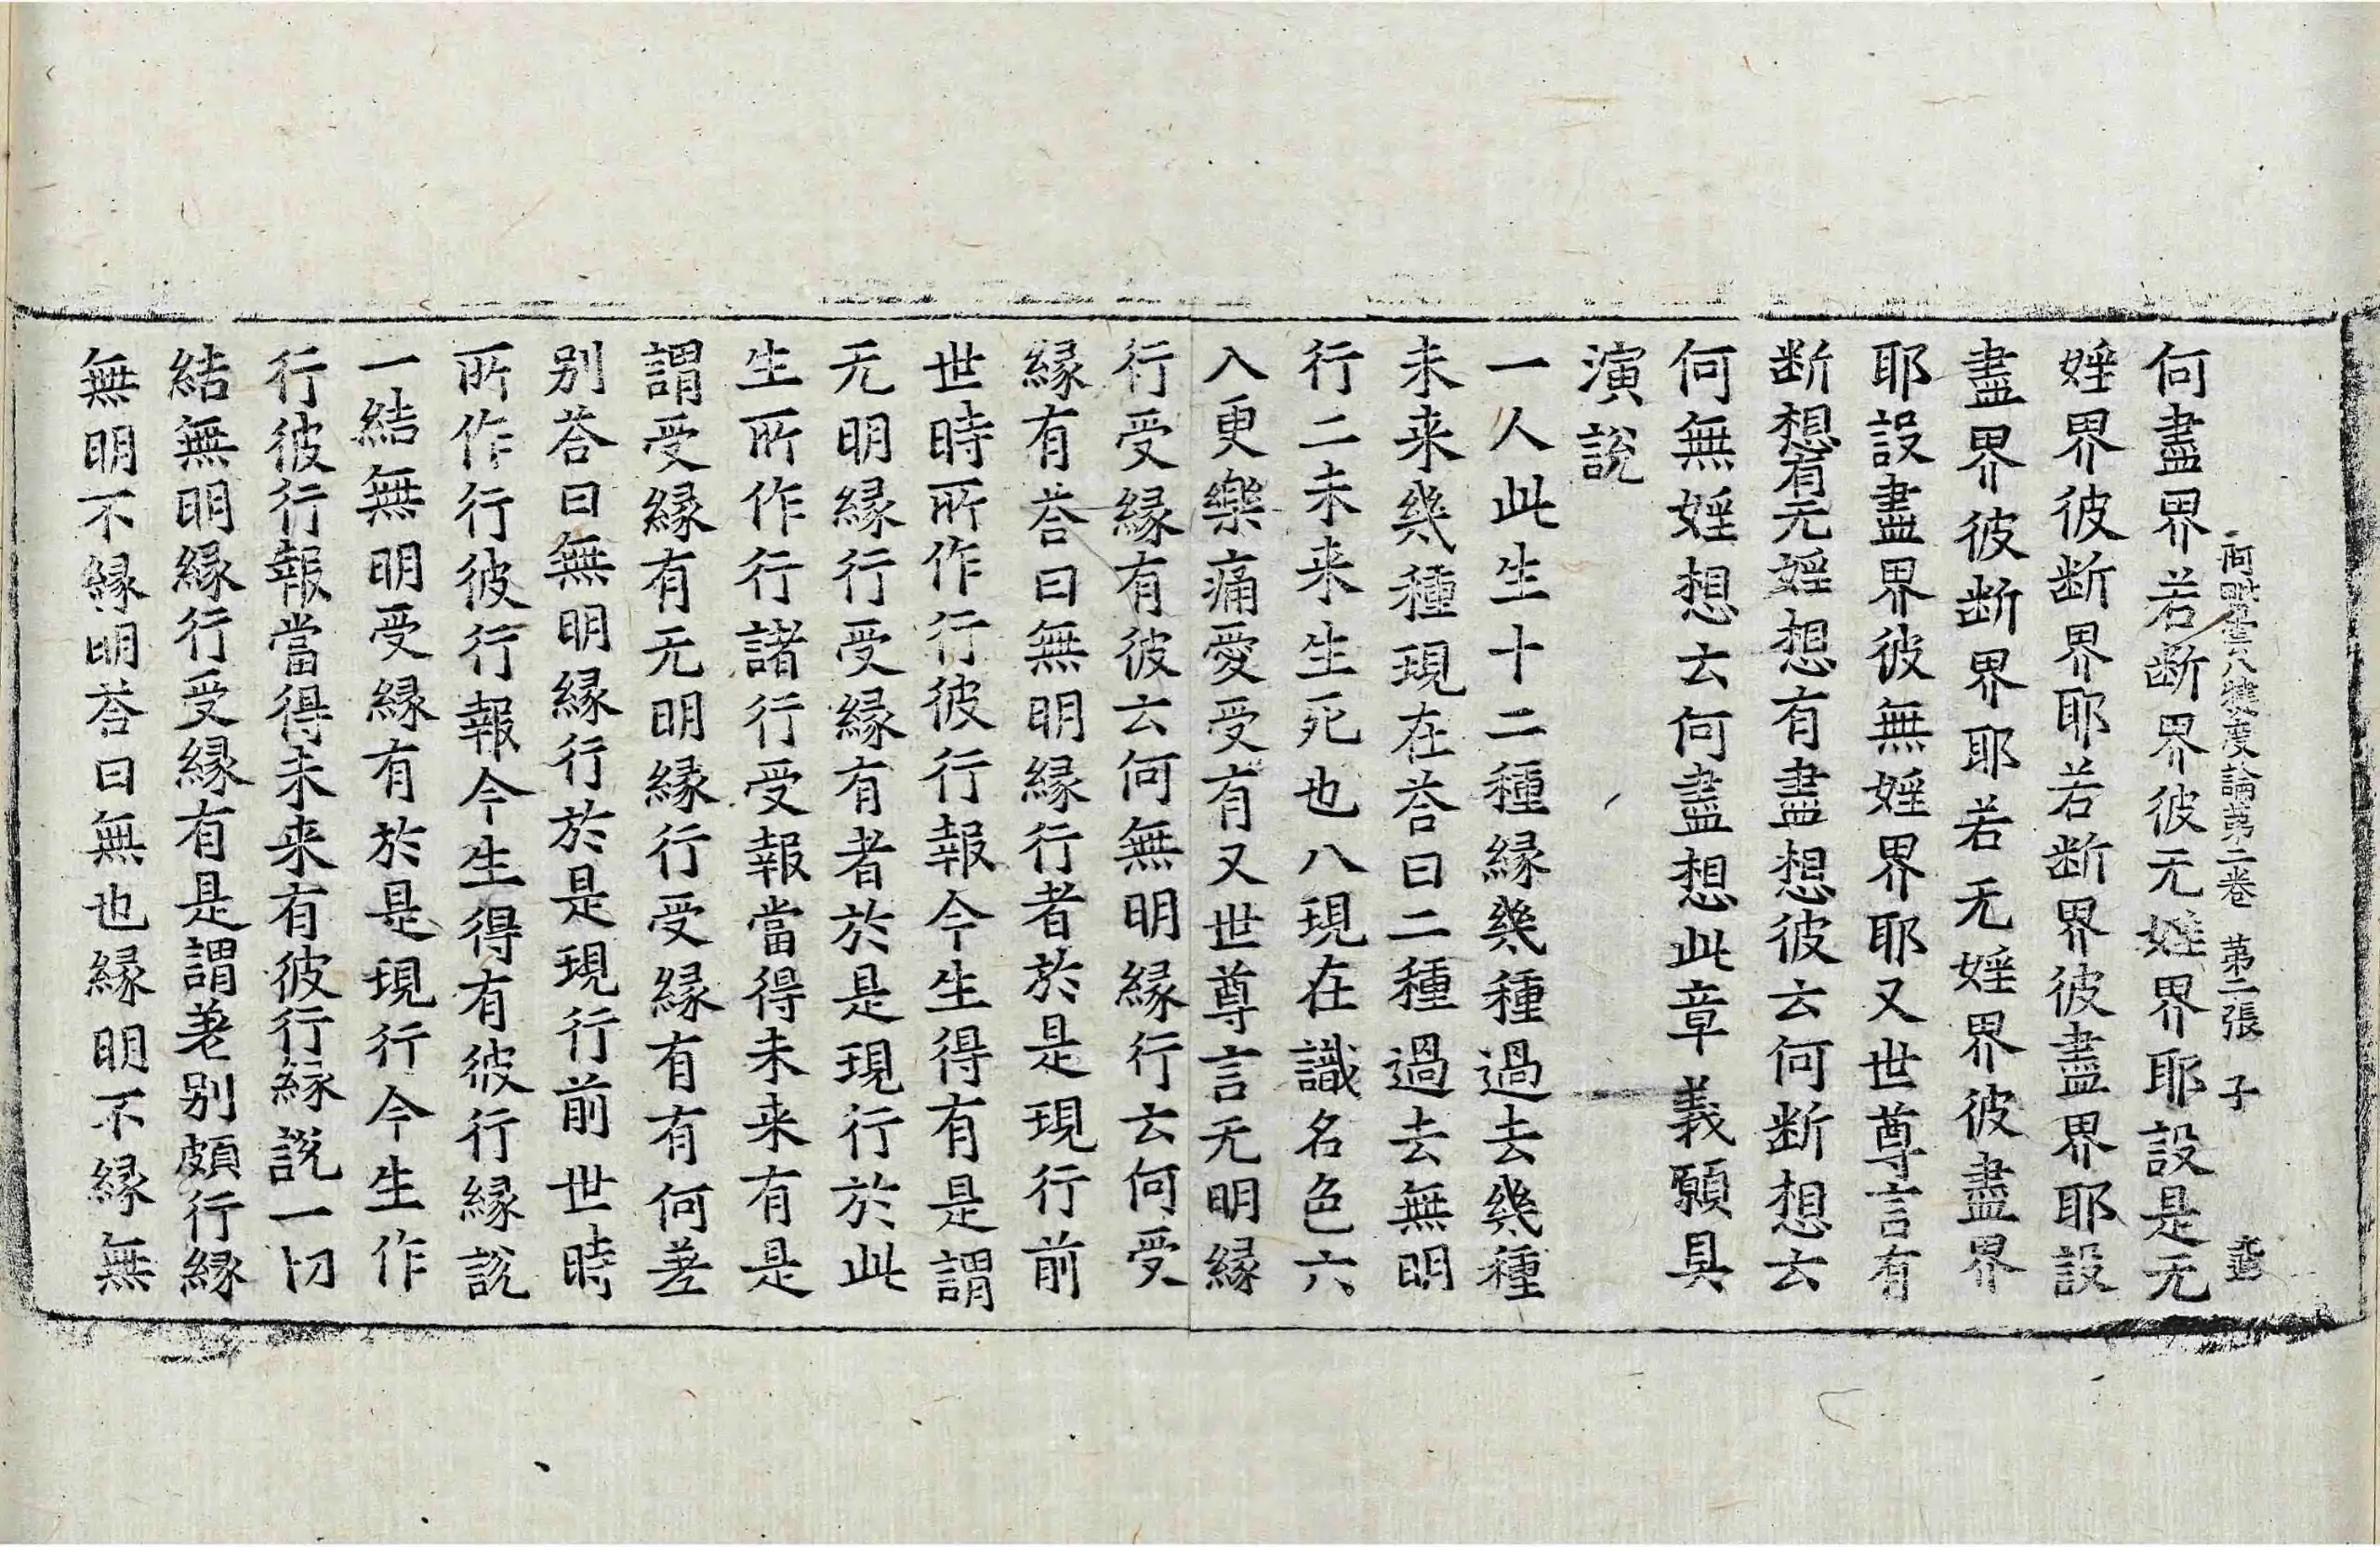 阿毗曇八犍度論苐二卷 苐二張 子
何盡界若断界彼无婬界耶設是无
婬界彼断界耶若断界彼盡界耶設
盡界彼断界耶若无婬界彼盡界
耶設盡界彼無婬界耶又世尊言有
断想有无婬想有盡想彼云何断想云
何無婬想云何盡想此章義願具
演說
一人此生十二種縁幾種過去幾種
未来幾種現在荅曰二種過去無明
行二未来生死也八現在識名色六
入更樂痛愛受有又世尊言无明縁
行受縁有彼云何無明縁行云何受
縁有荅曰無明縁行者於是現行前
世時所作行彼行報今生得有是謂
无明縁行受縁有者於是現行於此
生所作行諸行受報當得未来有是
謂受縁有无明縁行受縁有有何差
别荅曰無明縁行於是現行前世時
所作行彼行報今生得有彼行縁說
一結無明受縁有於是現行今生作
行彼行報當得未来有彼行縁說一切
結無明縁行受縁有是謂差别頗行縁
無明不縁明荅曰無也縁明不縁無